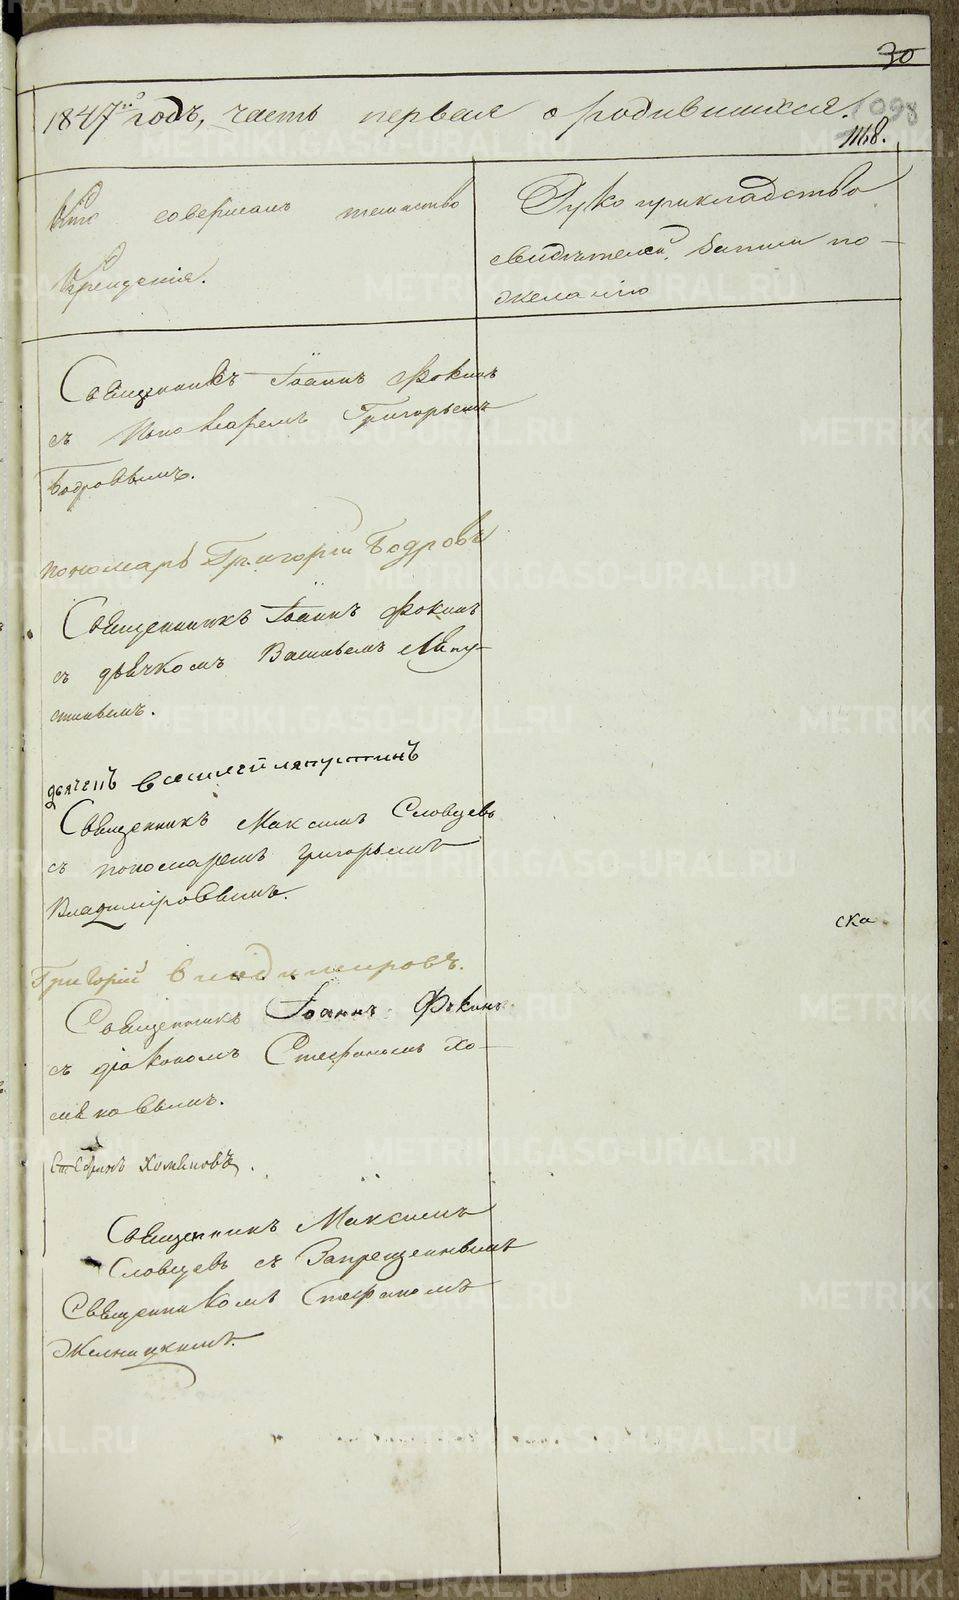 30
1098
1847го годъ, часть первая о родившихся.
1168.
Кто совершалъ таинство
Крещенія.
Рукоприкладство
свидѣтелей записи по
желанію
Священникъ Іоаннъ Фокинъ
съ Пономаремъ Григорьемъ
Бодровымъ.
пономарь Григорій Бодровъ
Священникъ Іоаннъ Фокинъ
съ дьячкомъ Васильемъ Ляпу-
стинымъ.
дьячекъ Василей Ляпустинъ
Священникъ Максимъ Словцевъ
съ пономаремъ Григорьемъ
Владиміровымъ.
Григорій Владимировъ.
Священникъ Іоаннъ Фокинъ
съ діакономъ Стефаномъ Хо-
мяковымъ.
Стефанъ Хомяковъ.
Священникъ Максимъ
Словцевъ съ Запрещеннымъ
Священникомъ Стефаномъ
ска
METRIKI.GASO-URAL.RU